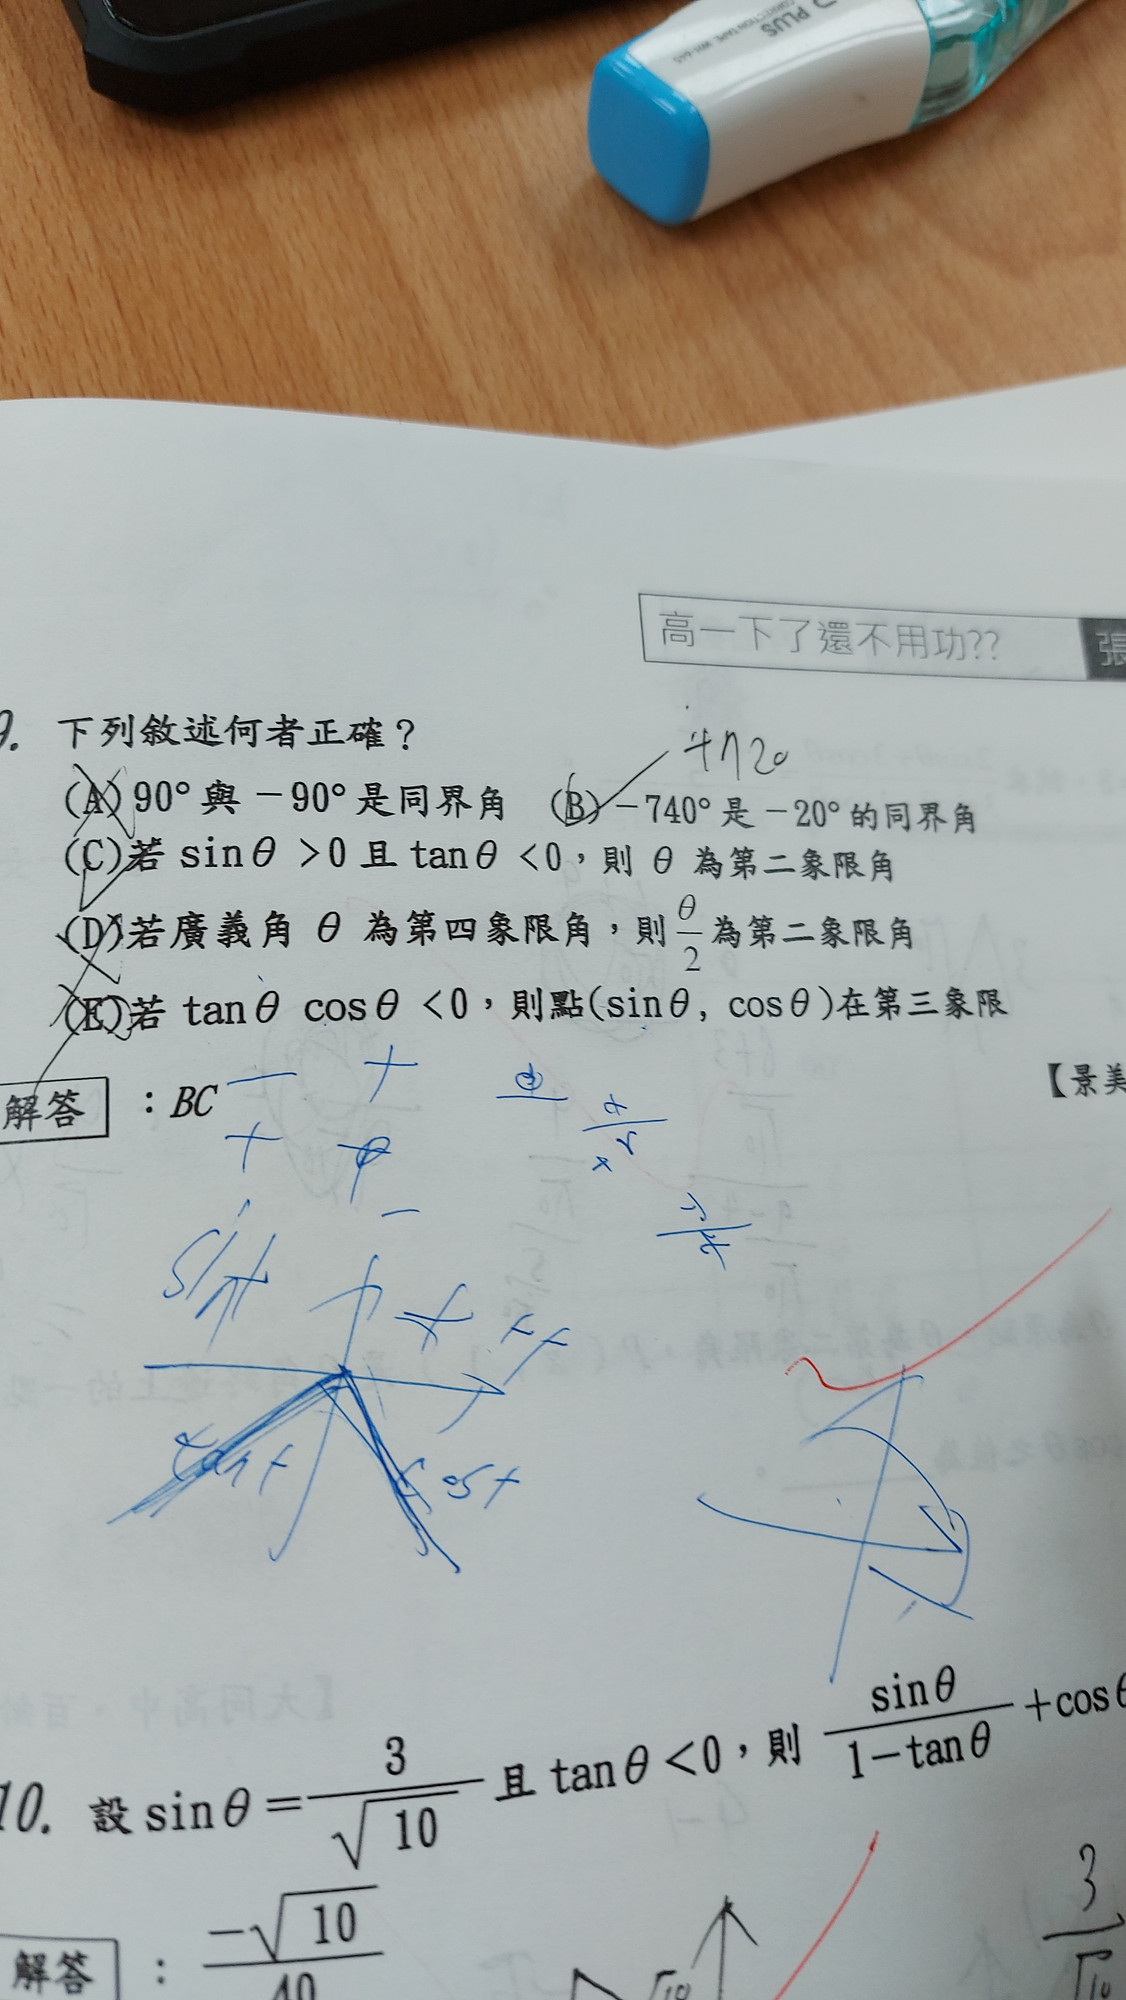 PLUS
CORRECTION TAPE WH-645
高一下了還不用功?? 張
9. 下列敘述何者正確？
+720
(A) 90° 與 −90° 是同界角 (B) −740° 是 −20° 的同界角
(C) 若 sinθ >0 且 tanθ <0，則 θ 為第二象限角
(D) 若廣義角 θ 為第四象限角，則 θ/2 為第二象限角
(E) 若 tanθ cosθ <0，則點(sinθ, cosθ)在第三象限
解答 : BC
【景美
− +
+ +
−
sin+
+
tan+
cos+
10. 設 sinθ = 3/√10 且 tanθ <0，則 sinθ/(1−tanθ) +cosθ
解答 : −√10/40
3/√10
√10